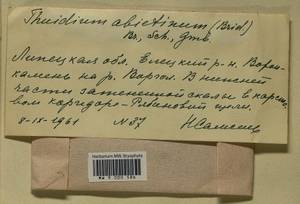 Thuidium abietinum (Brid)
Br., Sch., Gmb.
Липецкая обл. Елецкий р-н. Ворон-
камень на р. Воргол. В нижней
части затененной скалы в
вом щели.
8-IX-1961 N37
Herbarium MW, Bryophyta